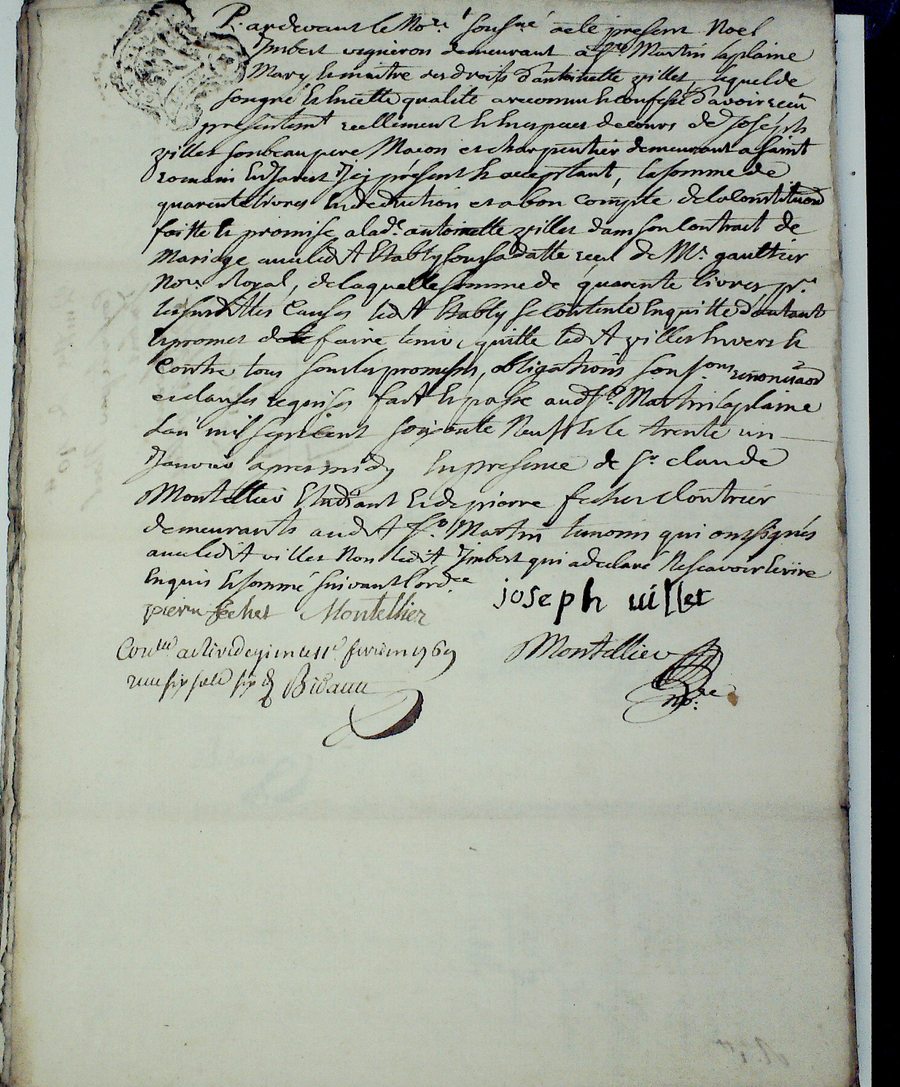 Pardevant le No.re souss.né a été present Noel
Imbert vigneron demeurant a St. Martin laplaine
Mary et maitre des droits d'antoinette villet, lequel de
son gré et en cette qualité a reconnu et confessé d'avoir recu
presentemt. reellement et en especes de cours de Joseph
villet son beau pere Macon et charpentier demeurant a Saint
romain en Jarest icy présent et acceptant, la somme de
quarente livres en deduction et a bon compte de la constituõn
faitte et promise a lad. antoinette villet dans son contract de
Mariage avec led.t Etably sous sa datte recu de Me. gaultier
Nore. Royal, de laquelle somme de quarente livres pr.
les susdittes causes ledit Etably se contente en quitte d'autant
et promet de le faire tenir quitte ledit villet envers et
contre tous sous les promesses, obligations, soumons. renonciaõn
et clauses requises fait et passé aud. St. Martin laplaine
L'an mil sept cent soixante Neuf et le trente un
Janvier apres midy en presence de Sr. claude
Montellier Etudiant et de pierre fechet cloutrier
demeurants audit St. Martin temoins qui ont signés
avec ledit villet Non ledit Imbert qui a declaré Ne scavoir ecrire
enquis et sommé suivant l'ord.ce
pierre fechet Montellier joseph villet
Con.lé a Rivedegier le 11e. fevrier 1769 Montellier
recu six sols six d. Bidaux nore.